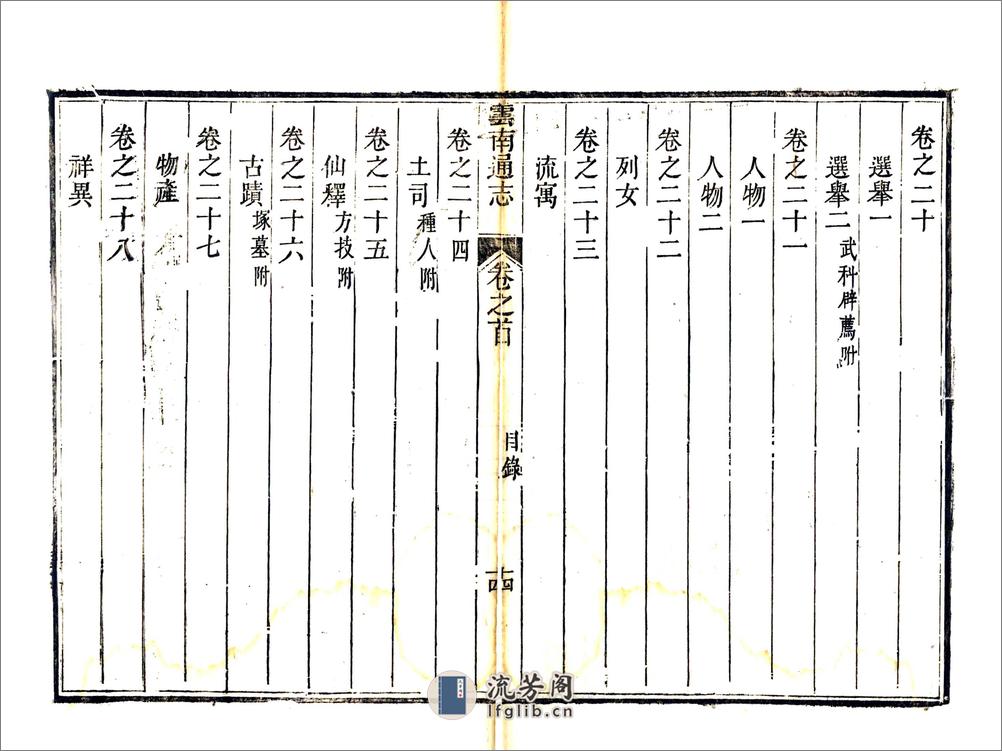 卷之二十
選舉一
選舉二 武科辟薦附
卷之二十一
人物一
人物二
卷之二十二
列女
卷之二十三
流寓
雲南通志 卷之首 目錄 十四
卷之二十四
土司 種人附
卷之二十五
仙釋 方技附
卷之二十六
古蹟 塚墓附
卷之二十七
物產
卷之二十八
祥異
流芳阁
lfglib.cn